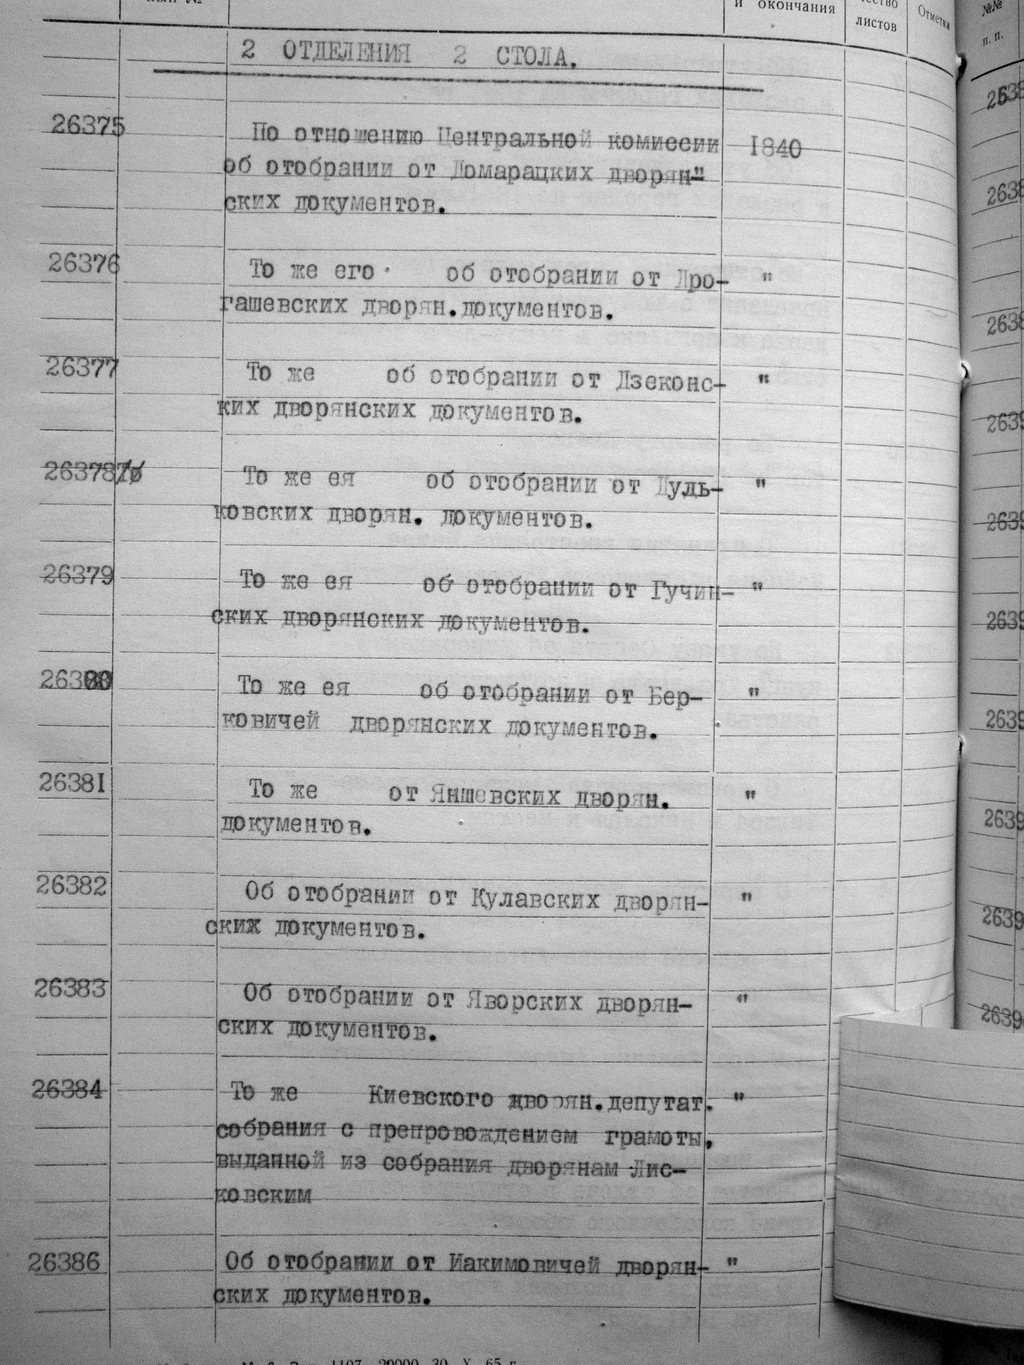 и окончания
листов
Отметки
№№
п. п.
2 ОТДЕЛЕНИЯ 2 СТОЛА.
26375 По отношению Центральной комиссии I840
об отобрании от Домарацких дворян-"
ских документов.
26376 То же его об отобрании от Дро- "
гашевских дворян.документов.
26377 То же об отобрании от Дзеконс- "
ких дворянских документов.
26378 То же ея об отобрании от Дудь- "
ковских дворян. документов.
26379 То же ея об отобрании от Гучин- "
ских дворянских документов.
26380 То же ея об отобрании от Бер- "
ковичей дворянских документов.
2638I То же от Яншевских дворян. "
документов.
26382 Об отобрании от Кулавских дворян- "
ских документов.
26383 Об отобрании от Яворских дворян- "
ских документов.
26384 То же Киевского дворян.депутат. "
собрания с препровождением грамоты,
выданной из собрания дворянам Лис-
ковским
26386 Об отобрании от Иакимовичей дворян- "
ских документов.